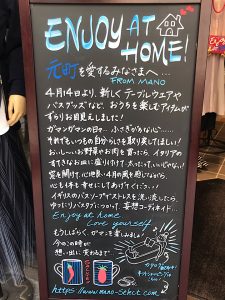 ENJOY AT
HOME!
元町を愛するみなさまへ…
FROM MANO
4月4日より、新しくテーブルウエアや
バスグッズなど、おうちを楽しむアイテムが
ずらりお目見えしました!
ガマンガマンの日々… ふさぎがちな心……
それでもいつもの自分らしさを取り戻してほしい!
おいしいお野菜やお肉を買ったら、イタリアの
すてきなお皿に盛り付けて、大いに
窓を開けて、心地良い4月の風を感じながら
心も体も幸せにしてあげてください!
イギリスのバスソープでストレスを洗い流したら、
ゆったりバスタブにつかって、妄想コーディネイト…
Enjoy at home
Love yourself
もうしばらく、ガマンを楽しみましょう
今のこの時が
想い出に変わるまで
https://www.mano-select.com